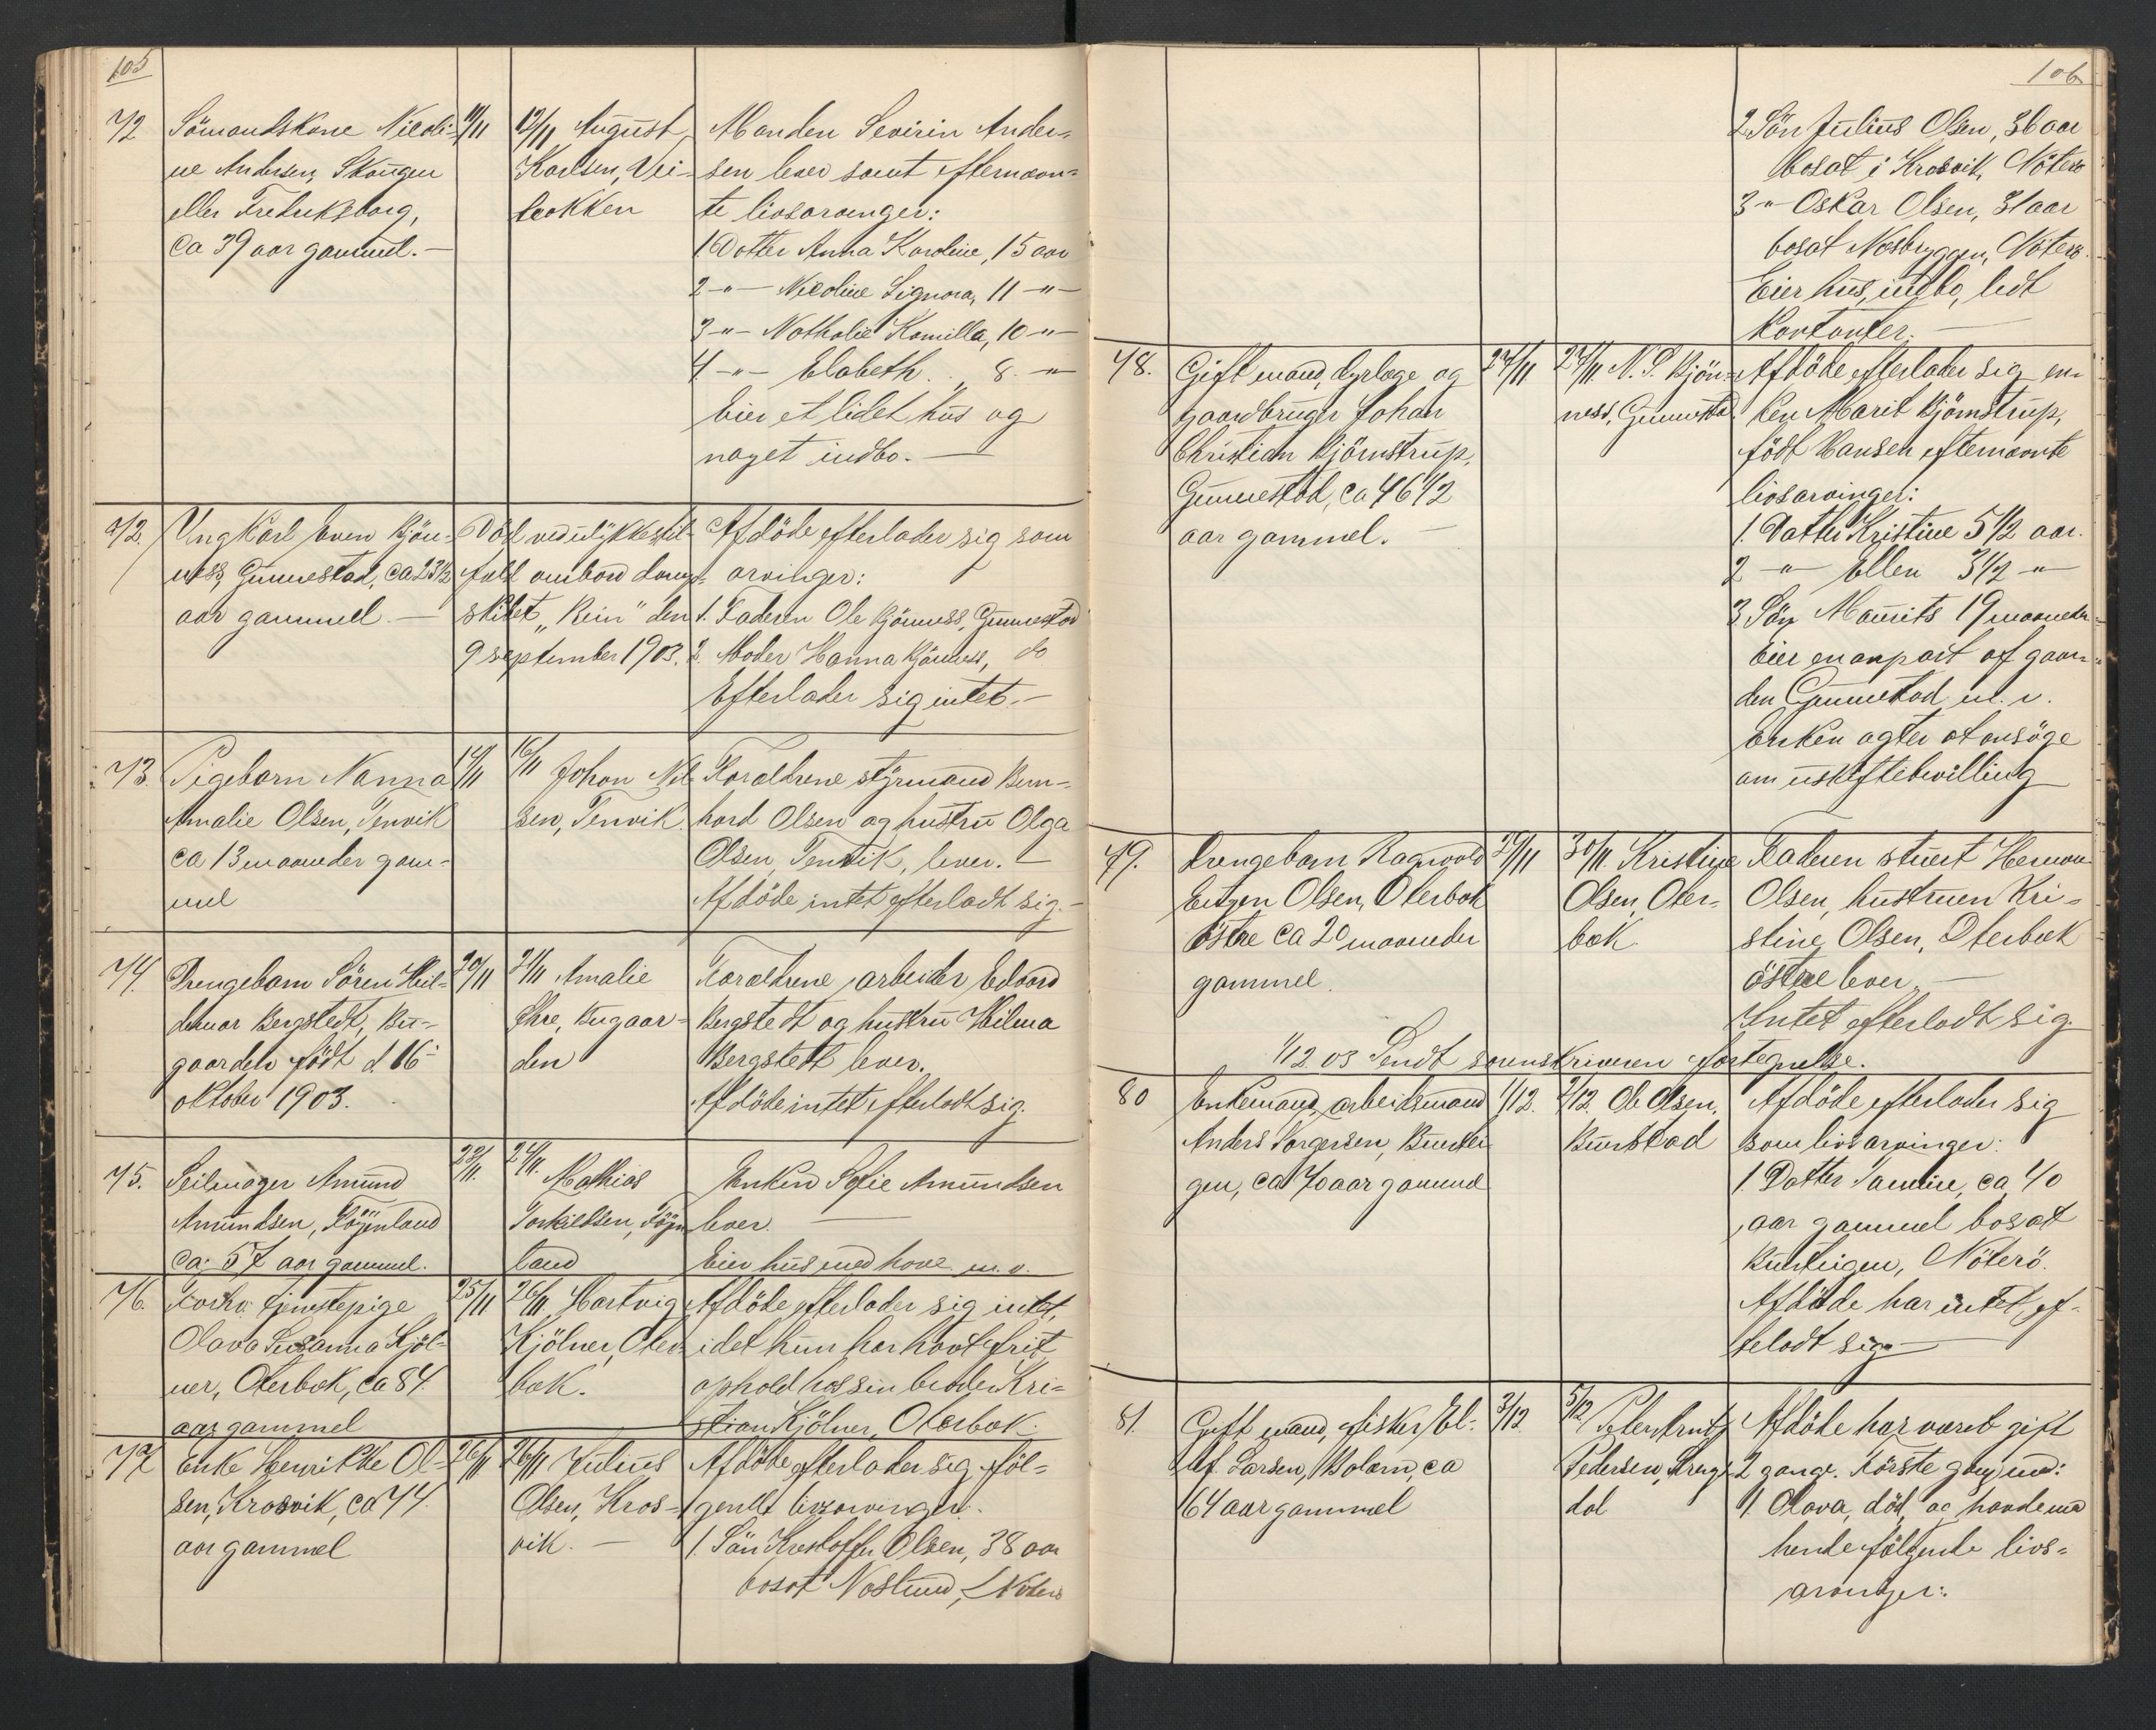 105
72
Sömandskone Nicoli-
ne Andersen, Skaugen
eller Fredriksborg,
ca 39 aar gammel. —
11/11
12/11 August
Karlsen, Vei-
løkken
Manden Severin Ander-
sen lever samt efternævn-
te livsarvinger:
1 Datter Anna Karoline, 15 aar
2 -"- Nicoline Signora, 11 -"-
3 -"- Nathalie Kamilla, 10 -"-
4 -"- Elabeth . , 8 -"-
Eier et lidet hus og
noget indbo. —
72.
Ungkarl Even Bjön-
ness, Gunnestad, ca 23 1/2
aar gammel —
Död ved ulykkestil-
fæld ombord damp-
skibet "Rein" den
9 september 1903.
Afdöde efterlader sig som
arvinger:
1. Faderen Ole Bjönness, Gunnestad
2. Moder Hanna Bjönness, do
Efterlader sig intet. —
73.
Pigebarn Nanna
Amalie Olsen, Tenvik
ca 13 maaneder gam-
mel
14/11
16/11 Johan Nil-
sen, Tenvik.
Forældrene styrmand Bern-
hard Olsen og hustru Olga
Olsen, Tenvik, lever. —
Afdöde intet efterladt sig. —
74.
Drengebarn Sören Hil-
demar Bergstedt, Bu-
gaarden födt d. 16
oktober 1903.
20/11
21/11 Amalie
Ehre, Bugaar-
den
Forældrene, arbeider Edvard
Bergstedt og hustru Hilma
Bergstedt lever.
Afdöde intet efterladt sig.
75.
Seilmager Amund
Amundsen, Föynland
ca. 57 aar gammel.
22/11.
24/11. Mathias
Torkildsen, Föyn-
land
Enken Sofie Amundsen
lever. —
Eier hus med have m. v.
76.
Forhv. tjenestepige
Olava Susanna Kjöl-
ner, Oterbæk, ca 84
aar gammel
25/11
26/11 Hartvig
Kjölner, Oter-
bæk.
Afdöde efterlader sig intet,
idet hun har havt frit
ophold hos sin broder Kri-
stian Kjölner, Oterbæk.
77
Enke Henrikke Ol-
sen, Krosvik, ca 74
aar gammel
26/11
26/11 Julius
Olsen, Kros-
vik. —
Afdöde efterlader sig föl-
gende livsarvinger:
1. Sön Kristoffer Olsen, 38 aar
bosat Nøstlund, Nöterö
106
2 Sön Julius Olsen, 36 aar
bosat i Krosvik, Nöterö
3 -"- Oskar Olsen, 31 aar
bosat Nesbryggen, Nöterö.
Eier hus, indbo, lidt
kontanter. —
78.
Gift mand, dyrlæge og
gaardbruger Johan
Christian Bjömstrup,
Gunnestad, ca 46 1/2
aar gammel. —
24/11
27/11. N. S. Bjön-
ness, Gunnestad
Afdöde efterlader sig en-
ken Marit Bjömstrup,
födt Hansen efternævnte
livsarvinger:
1. Datter Kristine 5 1/2 aar.
2 -"- Ellen 3 1/2 -"-
3 Sön Maurits 19 maaneder
Eier en anpart af gaar-
den Gunnestad m. v.
Enken agter at ansöge
om uskiftebevilling
79.
Drengebarn Ragnvald
Eugen Olsen, Oterbæk
östre ca 20 maaneder
gammel.
29/11
30/11 Kristine
Olsen, Oter-
bæk.
Faderen stuert Herman
Olsen, hustruen Kri-
stine Olsen, Oterbæk
östre lever. —
Intet efterladt sig.
1/12 03 Sendt sorenskriveren fortegnelse.
80
Enkemand, arbeidsmand
Anders Torgersen, Buerstei-
gen, ca 70 aar gammel
1/12.
2/12. Ole Olsen,
Buerstad
Afdöde efterlader sig
som livsarvinger:
1. Datter Tamine, ca 40
aar gammel bosat
Buersteigen, Nöterö.
Afdöde har intet ef-
terladt sig —
81.
Gift mand, fisker El-
ef Larsen, Bolærn, ca
64 aar gammel
3/12
5/12 Peter Arntz
Pedersen,
dal
Afdöde har været gift
2 gange. Förste gang med:
1. Olava, död, og havde med
hende fölgende livs-
arvinger: